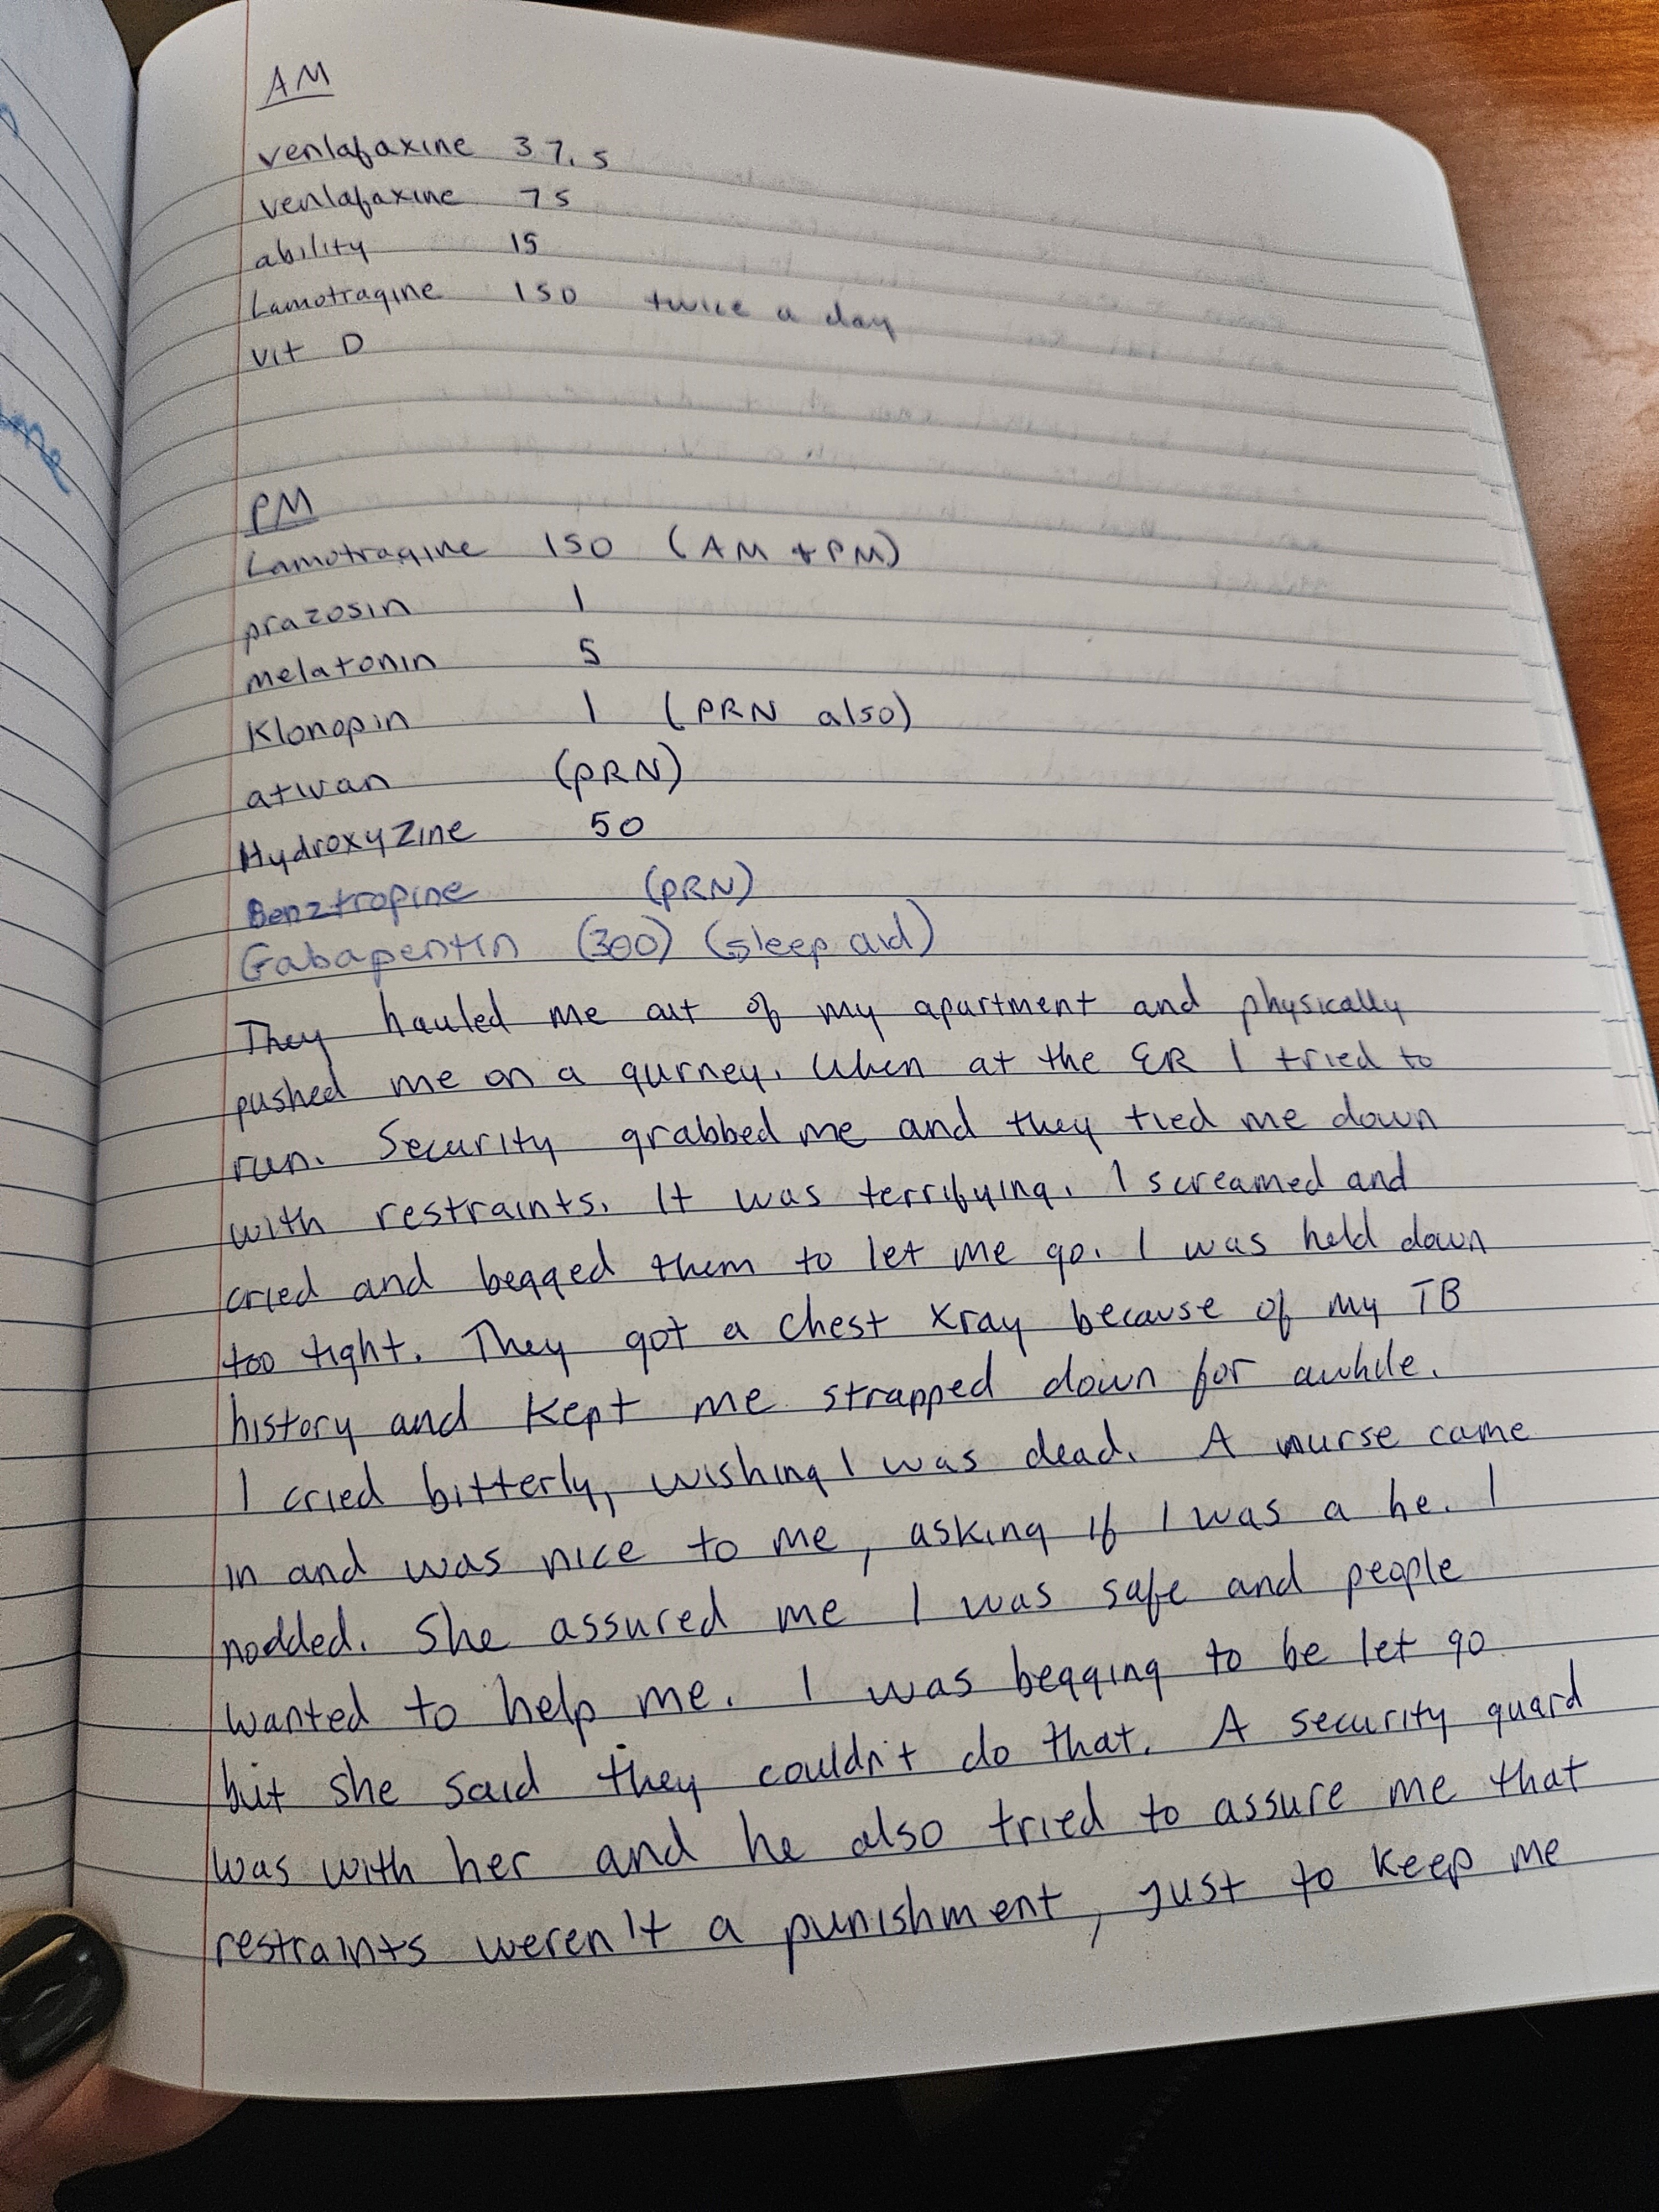 AM
venlafaxine 37.5
venlafaxine 75
ability 15
Lamotragine 150 twice a day
vit D
PM
Lamotragine 150 (AM + PM)
prazosin 1
melatonin 5
Klonopin 1 (PRN also)
ativan (PRN)
HydroxyZine 50
Benztropine (PRN)
Gabapentin (300) (sleep aid)
They hauled me out of my apartment and physically
pushed me on a gurney. When at the ER I tried to
run. Security grabbed me and they tied me down
with restraints. It was terrifying. I screamed and
cried and begged them to let me go. I was held down
too tight. They got a chest xray because of my TB
history and kept me strapped down for awhile.
I cried bitterly, wishing I was dead. A nurse came
in and was nice to me, asking if I was a he. I
nodded. She assured me I was safe and people
wanted to help me. I was begging to be let go
but she said they couldn't do that. A security guard
was with her and he also tried to assure me that
restraints weren't a punishment, just to keep me